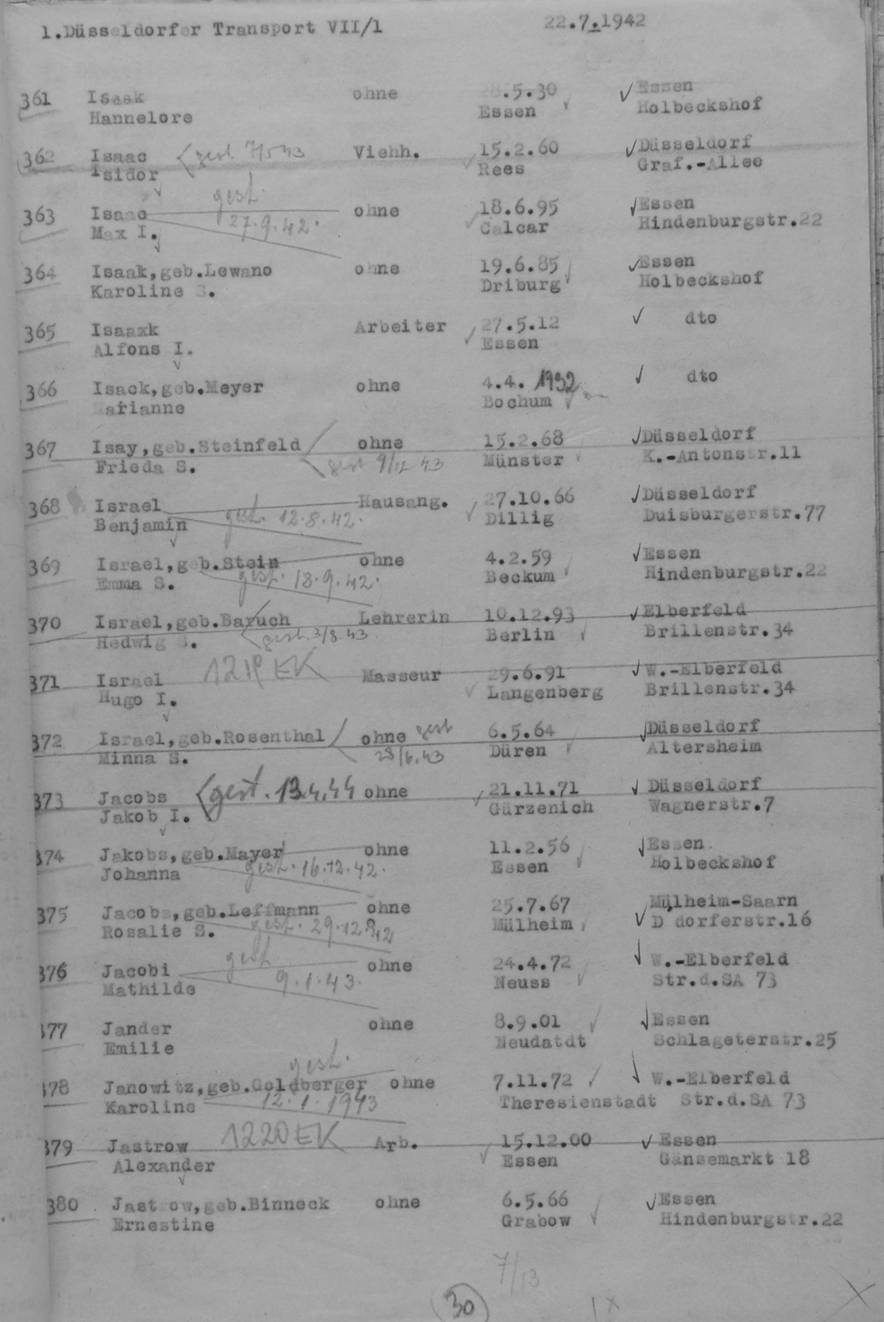 1.Düsseldorfer Transport VII/1 22.7.1942
361 Isaak ohne .5.30 Essen
Hannelore Essen Holbeckshof
362 Isaac gest. 7/5 43 Viehh. 15.2.60 Düsseldorf
Isidor Rees Graf.-Allee
363 Isaac gest. ohne 18.6.95 Essen
Max I. 27.9.42. Calcar Hindenburgstr.22
364 Isaak,geb.Lewano ohne 19.6.85 Essen
Karoline S. Driburg Holbeckshof
365 Isaaxk Arbeiter 27.5.12 dto
Alfons I. Essen
366 Isack,geb.Meyer ohne 4.4. 1932 dto
Marianne Bochum
367 Isay,geb.Steinfeld ohne 15.2.68 Düsseldorf
Frieda S. gest 9/12 43 Münster K.-Antonstr.11
368 Israel Hausang. 27.10.66 Düsseldorf
Benjamin gest. 12.8.42. Dillig Duisburgerstr.77
369 Israel,geb.Stein ohne 4.2.59 Essen
Emma S. gest. 18.9.42. Beckum Hindenburgstr.22
370 Israel,geb.Baruch Lehrerin 10.12.93 Elberfeld
Hedwig S. gest. 3/8.43 Berlin Brillenstr.34
371 Israel 1218 EK Masseur 29.6.91 W.-Elberfeld
Hugo I. Langenberg Brillenstr.34
372 Israel,geb.Rosenthal ohne gest 6.5.64 Düsseldorf
Minna S. 28/6.43 Düren Altersheim
373 Jacobs gest. 13.4.44 ohne 21.11.71 Düsseldorf
Jakob I. Gürzenich Wagnerstr.7
374 Jakobs,geb.Mayer ohne 11.2.56 Essen
Johanna gest. 16.12.42. Essen Holbeckshof
375 Jacobs,geb.Leffmann ohne 25.7.67 Mülheim-Saarn
Rosalie S. gest. 29.12. Mülheim D dorferstr.16
376 Jacobi gest ohne 24.4.72 W.-Elberfeld
Mathilde 9.1.43. Neuss Str.d.SA 73
377 Jander ohne 8.9.01 Essen
Emilie Neudatdt Schlageterstr.25
gest.
378 Janowitz,geb.Goldberger ohne 7.11.72 W.-Elberfeld
Karoline 12.1.1943 Theresienstadt Str.d.SA 73
379 Jastrow 1220 EK Arb. 15.12.00 Essen
Alexander Essen Gänsemarkt 18
380 Jast ow,geb.Binneck ohne 6.5.66 Essen
Ernestine Grabow Hindenburgstr.22
7/13
30